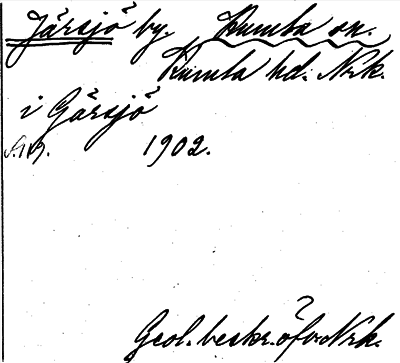 Järsjö by. Kumla sn.
Kumla hd. Nrk.
i Gärsjö
1902.
Geol. beskr. öfv. Nrk.